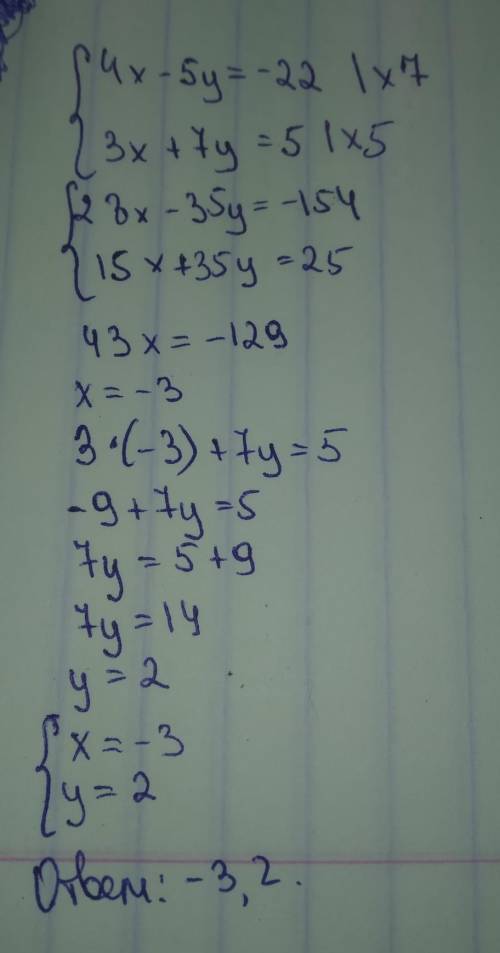 4x - 5y = -22 | x 7
3x + 7y = 5 | x 5
28x - 35y = -154
15x + 35y = 25
43x = -129
x = -3
3·(-3) + 7y = 5
-9 + 7y = 5
7y = 5 + 9
7y = 14
y = 2
x = -3
y = 2
Ответ: -3, 2.